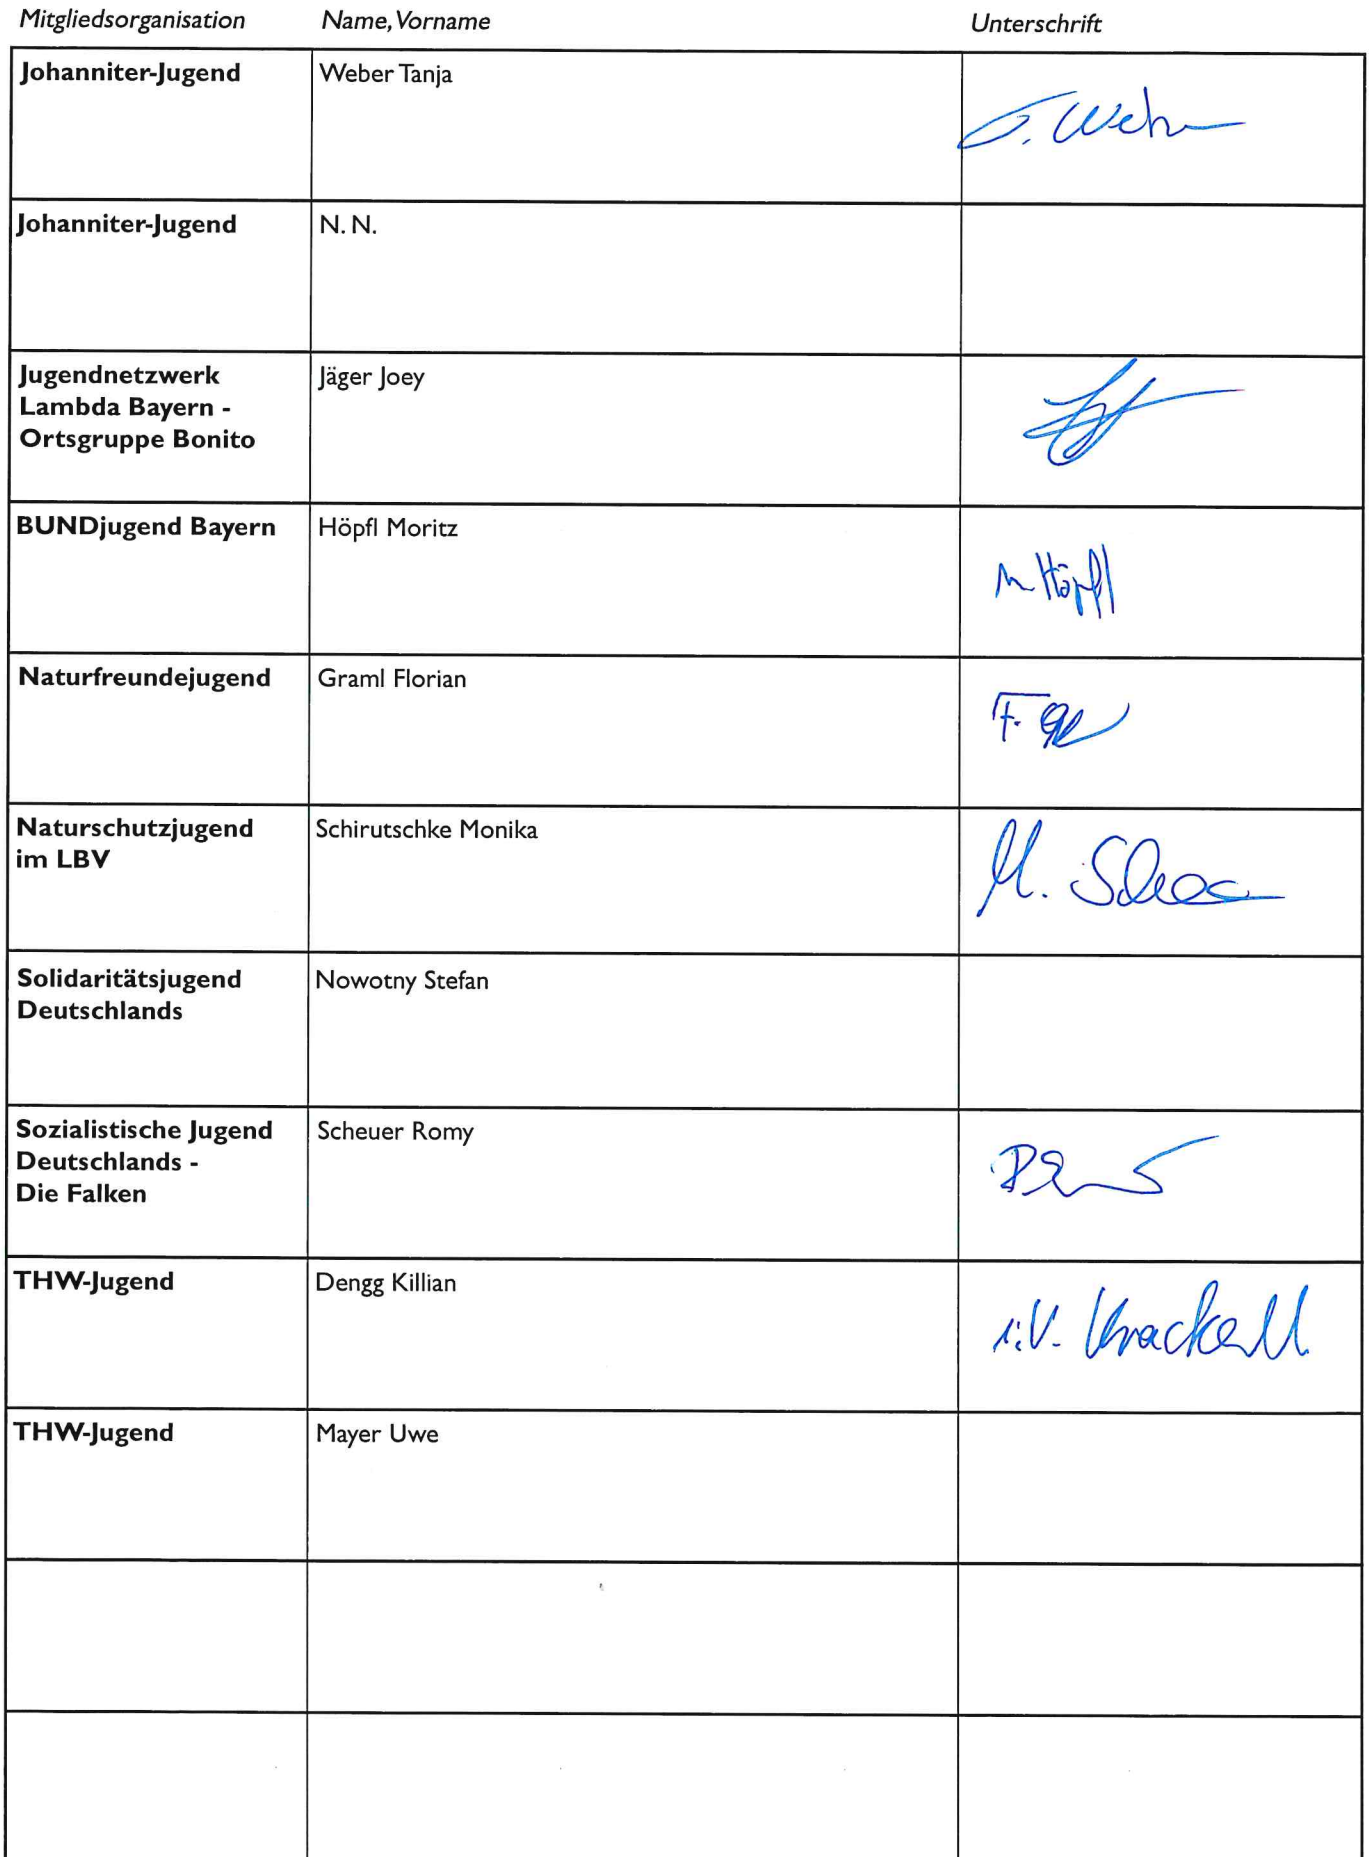 Mitgliedsorganisation Name, Vorname Unterschrift
Johanniter-Jugend Weber Tanja
T. Weber
Johanniter-Jugend N. N.
Jugendnetzwerk Jäger Joey
Lambda Bayern -
Ortsgruppe Bonito
BUNDjugend Bayern Höpfl Moritz
M Höpfl
Naturfreundejugend Graml Florian
F.
Naturschutzjugend Schirutschke Monika
im LBV
M.
Solidaritätsjugend Nowotny Stefan
Deutschlands
Sozialistische Jugend Scheuer Romy
Deutschlands -
Die Falken
THW-Jugend Dengg Killian
i.V.
THW-Jugend Mayer Uwe